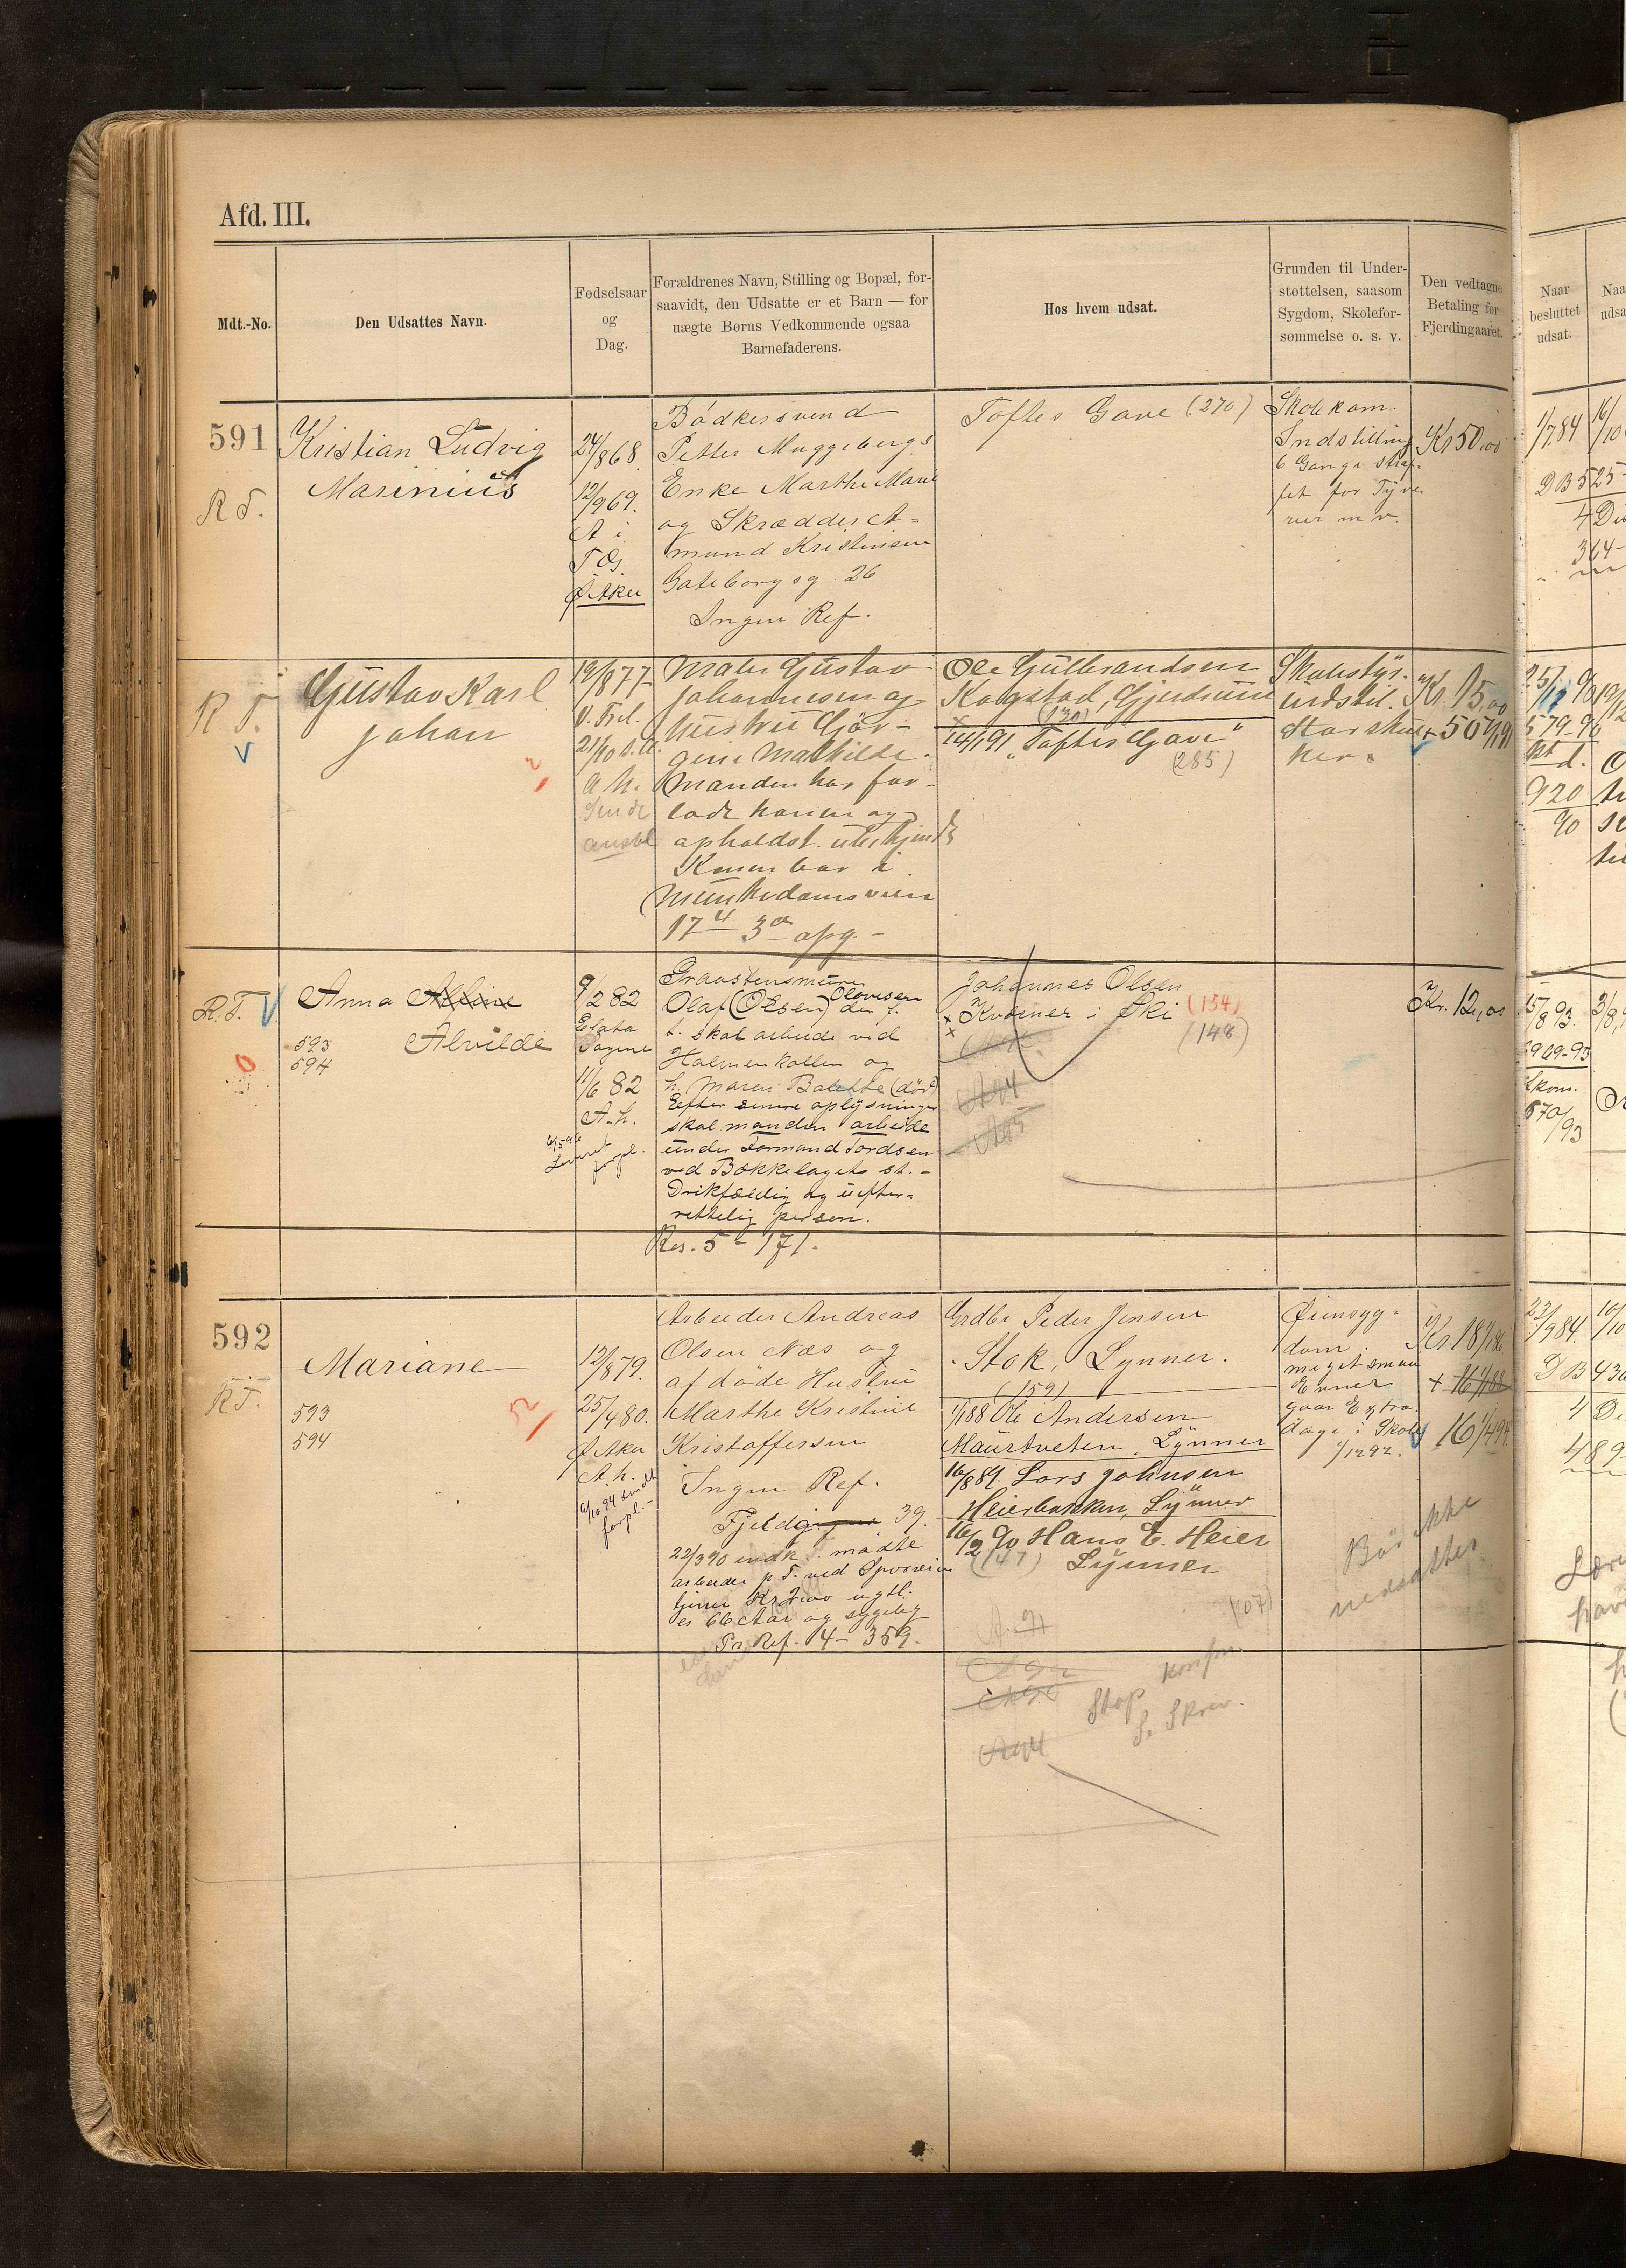 Afd. III.
Mdt.-No.
Den Udsattes Navn.
Fødselsaar
og
Dag.
Forældrenes Navn, Stilling og Bopæl, for-
saavidt, den Udsatte er et Barn — for
uægte Børns Vedkommende ogsaa
Barnefaderens.
Hos hvem udsat.
Grunden til Under-
støttelsen, saasom
Sygdom, Skolefor-
sømmelse o. s. v.
Den vedtagne
Betaling for
Fjerdingaaret.
Naar
besluttet
udsat.
Naa
udsa
591
R T.
Kristian Ludvig
Marinius
24/868
12/969.
A i
T G.
Ø Aker
Bødkersvend
Petter Muggebergs
Enke Marthe Marie
og Skrædder A-
mund Kristensen
Gøteborgsg. 26
Ingen Ref.
Toftes Gave (270)
Skolekom.
Indstilling
6 Gange straf-
fet for Tyve-
rier m v.
Kr 50.00
1/784
16/10
D B 525-
4 Di
364-
R T.
V
Gustav Karl
Johan
19/877
V. Frel.
21/10
A h.
Maler Gustav
Johannesen og
Hustru Gjør-
gine Mathilde.
Manden har for-
ladt konen og
opholdst. ubekjendt
Konen bor i
Munkedamsveien
17 4 3 opg. -
Ole Gulbrandsen
Kogstad, Gjerdrum
(130)
14/191 "Toftes Gave"
(285)
Skolestyr.
indstil.
Storsku-
ker.
Kr. 15,00
+ 50 1/191
25/11 90
19/12
579-96
920
90
R.T. V
0
Anna Alvine
Alvilde
593
594
9/282
Sagene
11/6 82
A. h.
forpl.
Graastensmurer
Olaf (Olsen) Olavesen
skal arbeide ved
Holmenkollen og
h. Maren Bolette (død)
Efter senere oplysninger
skal manden arbeide
under Formand Tordsen
ved Bækkelagets st. -
Drikfældig og uefter-
rettelig person.
Res. 5 - 171.
Johannes Olsen
Kværner i Ski (154)
(148)
A 94
A 95
Kr. 12,00
15/893.
3/8,
969-93
Skom.
570/93
592
R T.
Mariane
593
594
12/879.
25/480.
Ø Aker
A. h.
6/10 94
forpl.-
Arbeider Andreas
Olsen Næs og
afdøde Hustru
Marthe Kristine
Kristoffersen
Ingen Ref.
39.
22/390 indk. mødte
arbeider p. T. ved Sporveien
tjener Kr 7,00 ugtl.
er 66 Aar og sygelig
Pr. Ref. 4 - 359.
Grdbr Peder Jensen
Stok, Lynner.
(159)
1/188 Ole Andersen
Maurtveten, Lynner
16/889. Lars Johnsen
Heierbakken, Lynner
16/2 90 Hans E. Heier
(147) Lynner
(107)
Stop
S. Skriv.
Øiensyg-
dom.
meget smaa
Evner
gaar Extra
dage i Skole
1/1292.
Bør ikke
nedsættes
Kr 18 1/186
+ 16 1/188
16 1/494
22/984.
10/10
D B 430
4 Di
489-